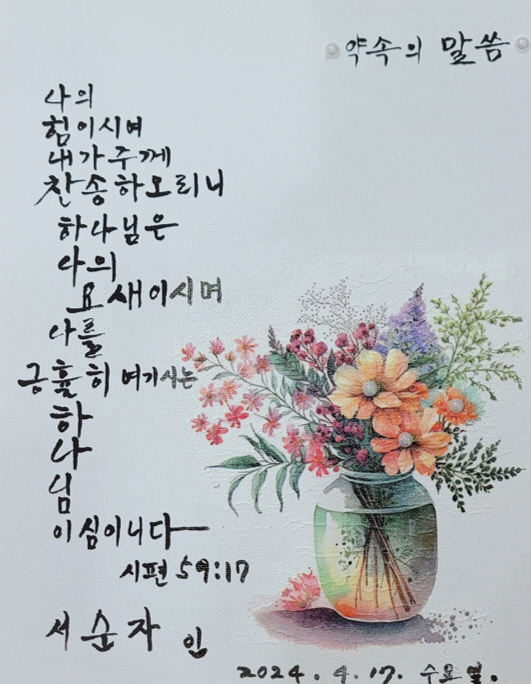 약속의 말씀
나의
힘이시여
내가주께
찬송하오리니
하나님은
나의
요새이시며
나를
긍휼히 여기시는
하
나
님
이심이니다
시편 59:17
서순자 인
2024. 4. 17. 수요일.